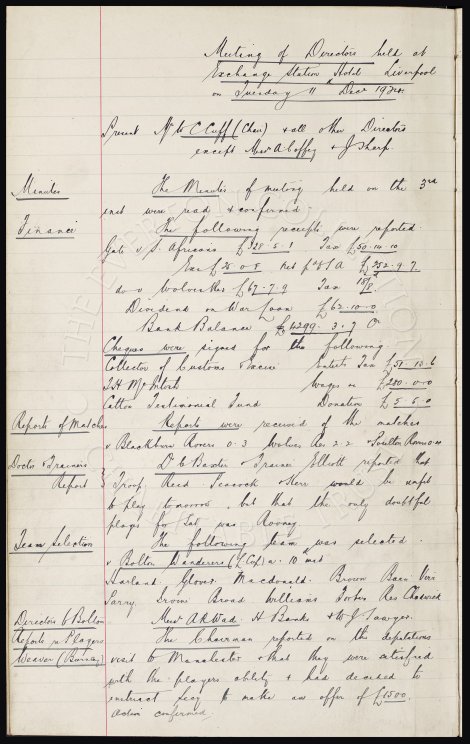 Meeting of Directors held at
Exchange Station Hotel Liverpool
on Tuesday 11th Decr 1924.
Present Mr W C Cuff (Chair) & all other Directors
except Messrs A Coffey & J Sharp.
Minutes The Minutes of meeting held on the 3rd
inst were read & confirmed.
Finance The following receipts were reported.
Gate v S. Africans £328.5.1 Tax £50.14.10
£25.0.8 net £252.9.7
do v Wolves Res £67.7.9 Tax 18/8
Dividend on War Loan £62.10.0
Bank Balance £4299.3.7 Cr
Cheques were signed for the following
Collector of Customs Excise Entets Tax £51.13.6
J.H McIntosh wages £280.0.0
Catton Testimonial Fund Donation £5.5.0
Reports of Matches Reports were received of the matches
v Blackburn Rovers 0.3 Wolves Res 2.2
Doctor & Trainers Dr C Baxter & Trainer Elliott reported that
Report Troup Reid Peacock & Kerr would be unfit
to play tomorrow, but that the only doubtful
player for Sat was Rooney
Team Selection The following team was selected.
v Bolton Wanderers (L. Cup) a. 10th inst
Harland Glover Macdonald. Brown Bain Virr
Parry. Irvine Broad Williams Forbes Res Chadwick
Directors to Bolton Messrs A R Wade. H Banks & W J Sawyer.
Reports re Players The Chairman reported on the deputations
Weaver (Burnley) visit to Manchester & that they were satisfied
with the players ability & had decided to
instruct Secy to make an offer of £1500.
Action confirmed.